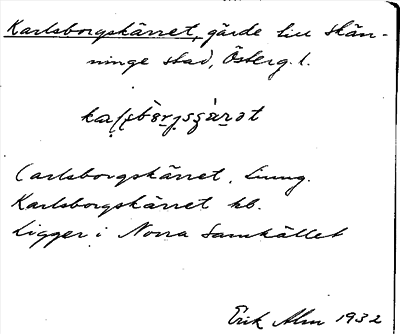 Karlsborgskärret, gärde till Skän-
ninge stad, Österg. l.
Carlsborgskärret, Ljung.
Karlsborgskärret kb.
Ligger i Norra Samfället
Erik Alm 1932